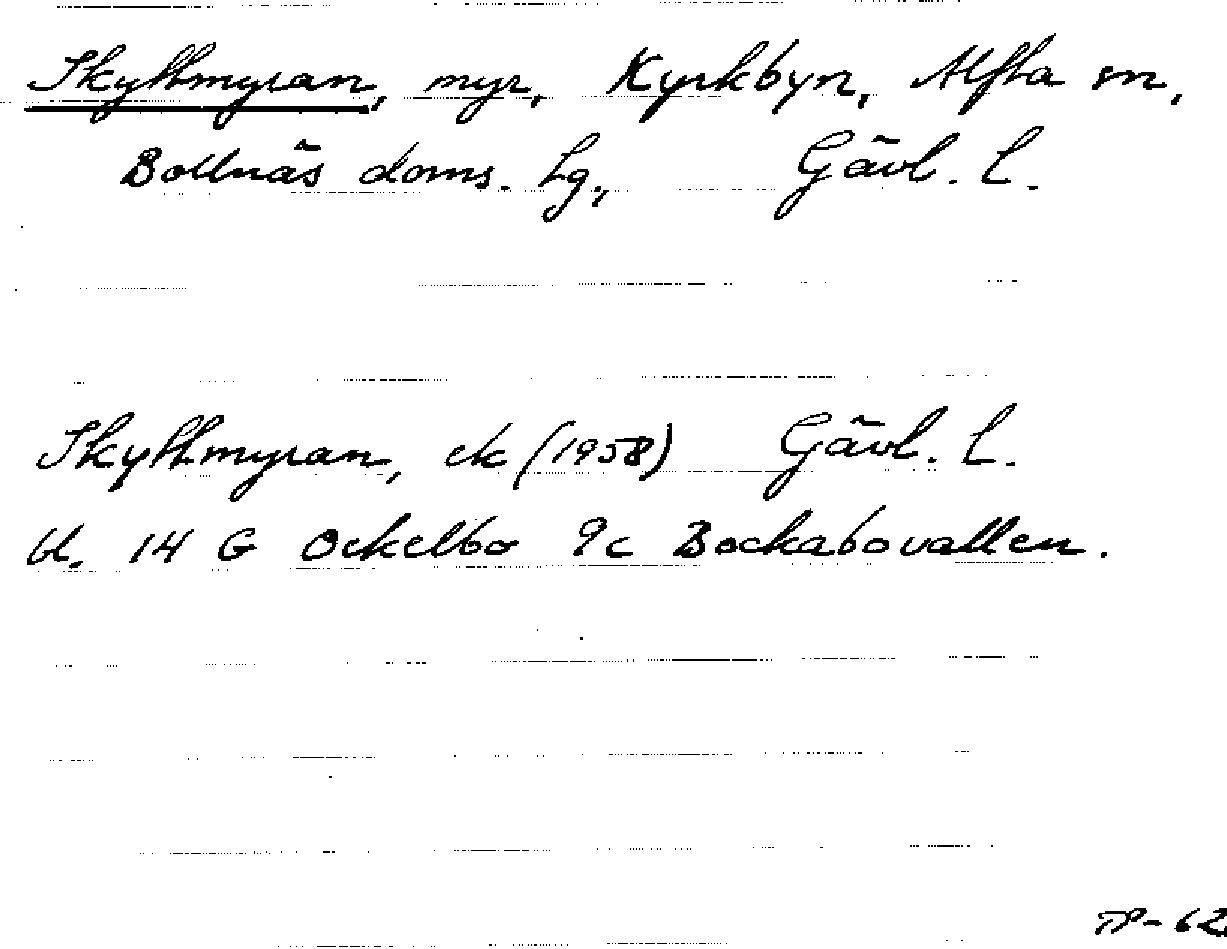 Skyttmyran, myr, Kyrkbyn, Alfta sn,
Bollnäs doms. lg, Gävl. l.
Skyttmyran, ek (1958) Gävl. l.
bl. 14 G Ockelbo 9c Bockabovallen.
TP-62